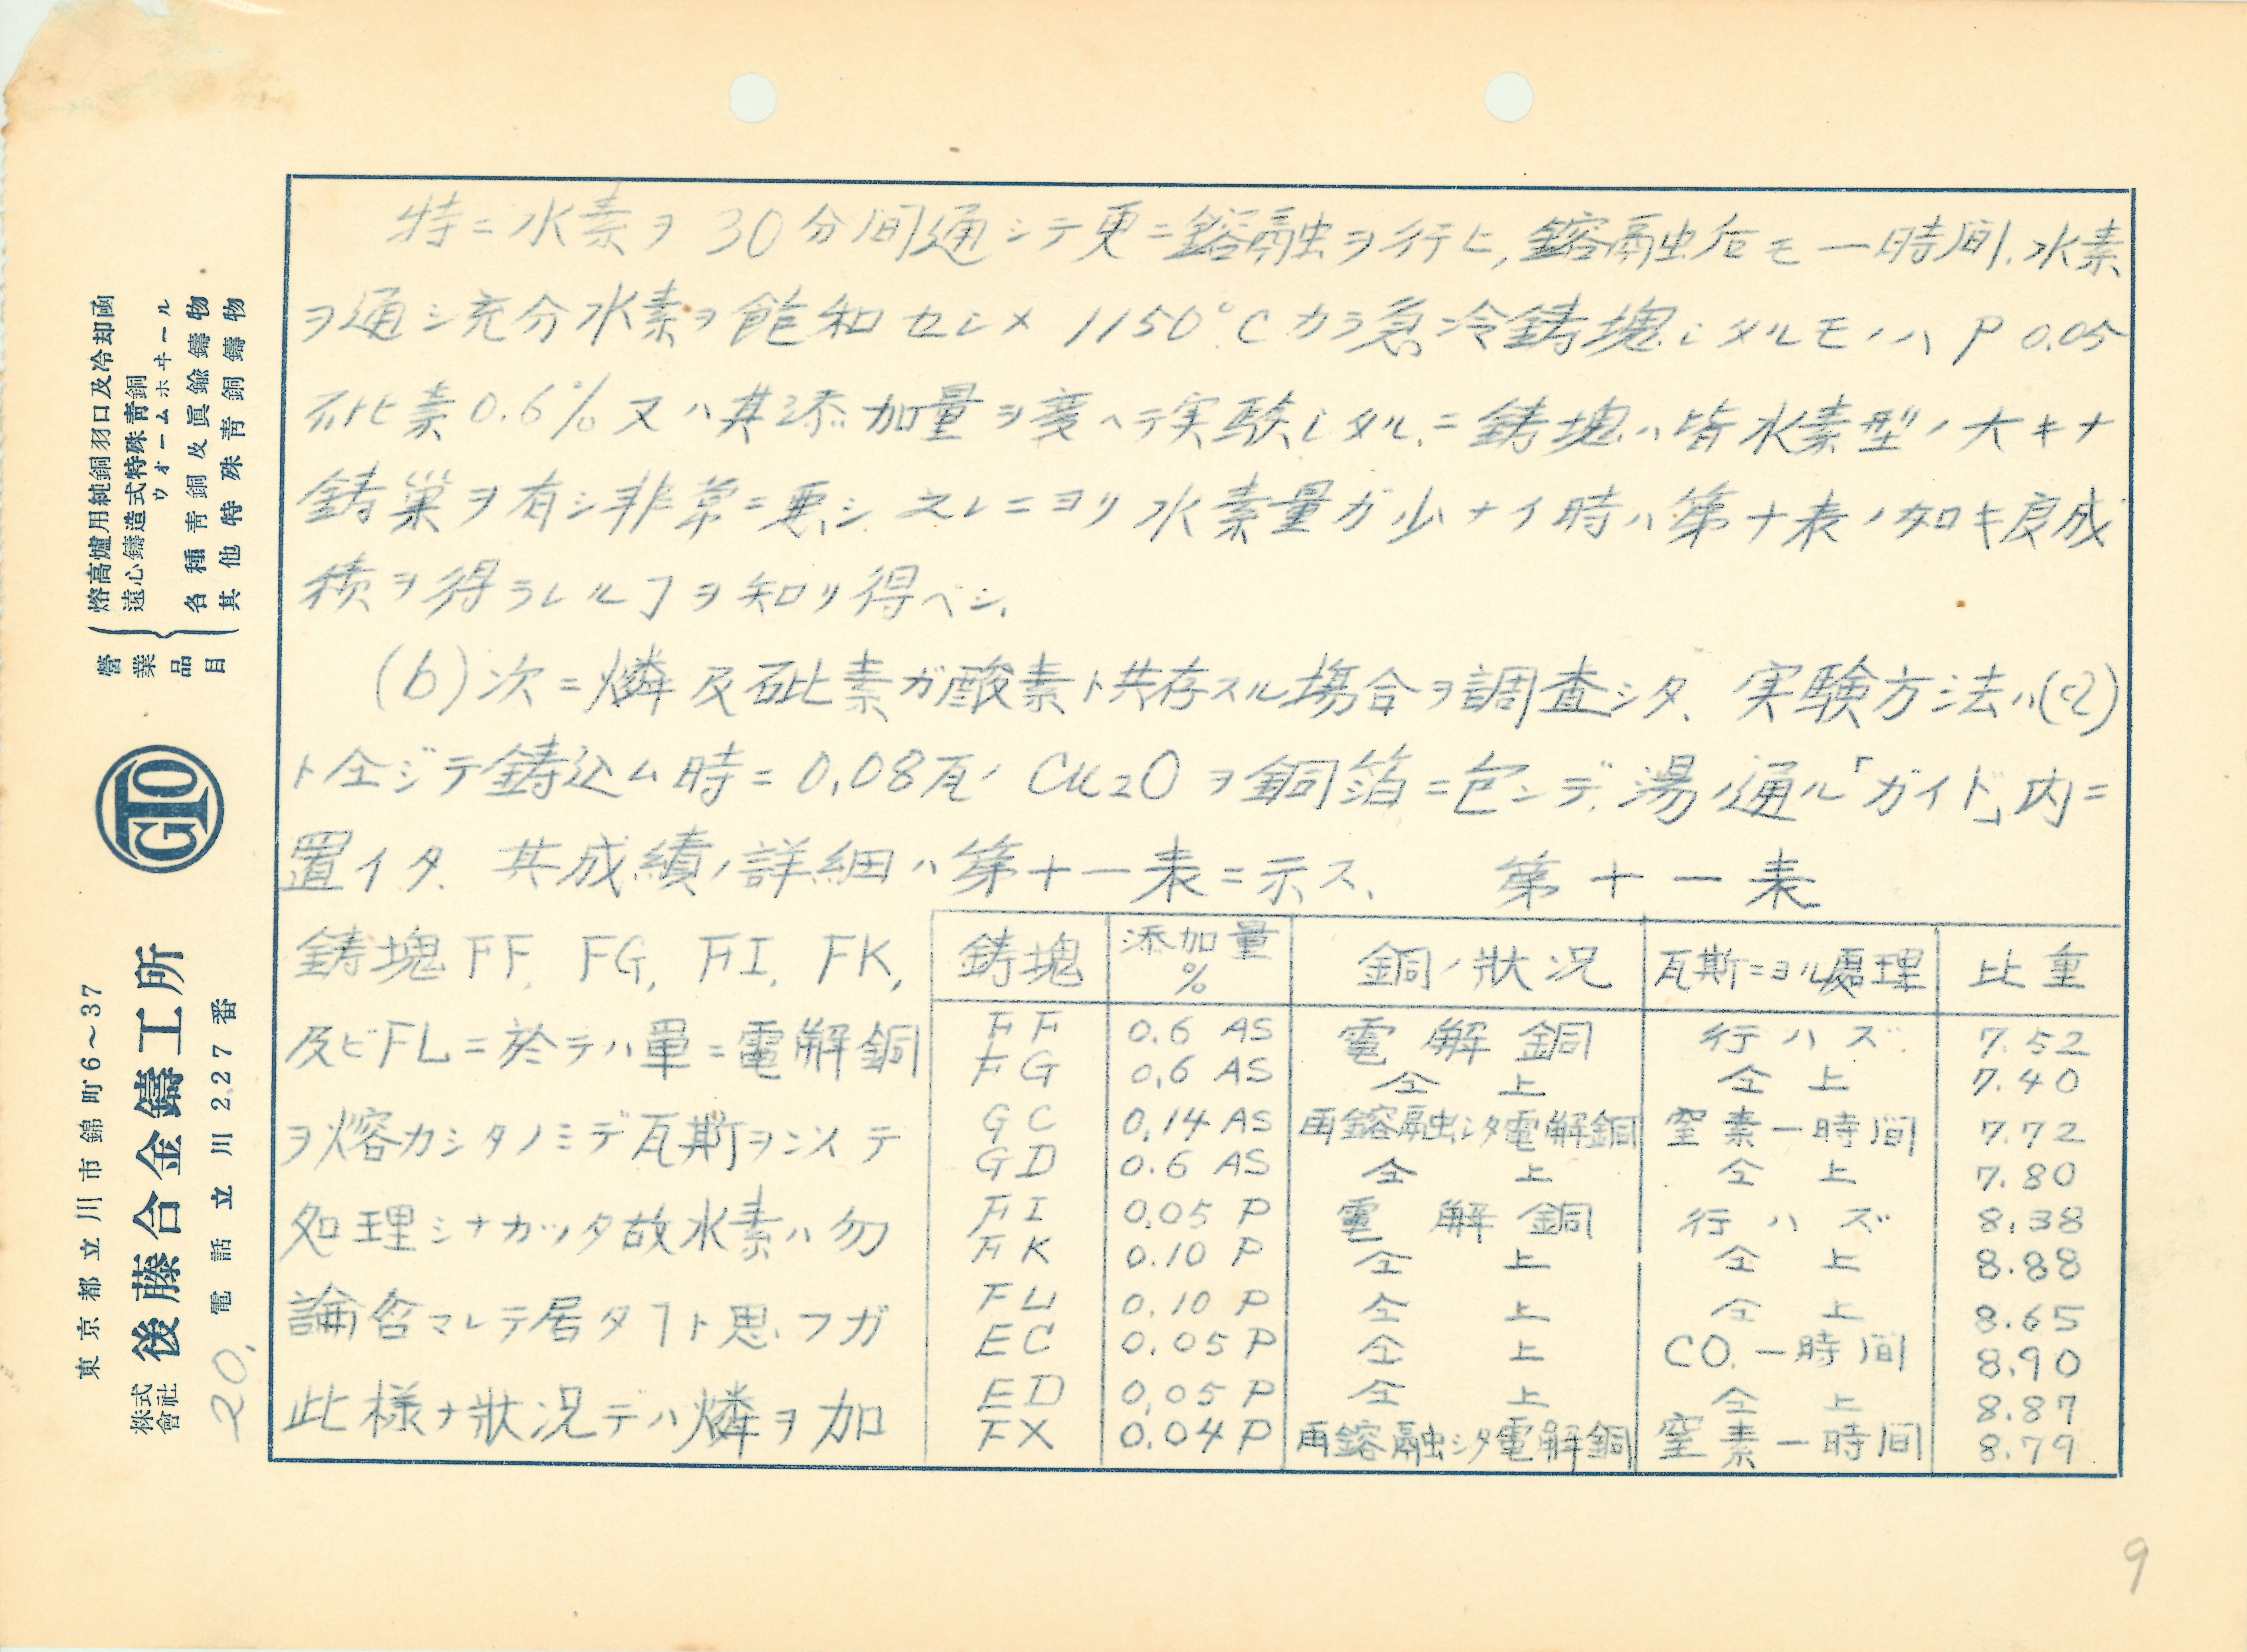 特ニ水素ヲ30分間通シテ更ニ鎔融ヲ行ヒ,鎔融后モ一時間.水素
ヲ通シ充分水素ヲ飽和セシメ 1150°Cカラ急冷鋳塊シタルモノハ P 0.05
砒素0.6% 又ハ其添加量ヲ変ヘテ実験シタルニ鋳塊ハ皆水素型ノ大キナ
鋳巣ヲ有シ非常ニ悪シ. 之レニヨリ水素量ガ少ナイ時ハ第十表ノ如キ良成
績ヲ得ラレルヿヲ知リ得ベシ.
(b)次ニ燐及砒素ガ酸素ト共存スル場合ヲ調査シタ. 実験方法ハ(a)
ト仝ジデ鋳込ム時ニ0.08瓦ノ Cu2O ヲ銅箔ニ包ンデ.湯ノ通ル「ガイド」内ニ
置イタ. 其成績ノ詳細ハ第十一表ニ示ス. 第十一表
鋳塊FF, FG, FI, FK,
及ビFLニ於テハ単ニ電解銅
ヲ熔カシタノミデ瓦斯ヲ以テ
処理シナカッタ故水素ハ勿
論含マレテ居タヿト思フガ
此様ナ狀況デハ燐ヲ加
鋳塊 添加量% 銅ノ狀況 瓦斯ニヨル處理 比重
FF 0.6 AS 電解銅 行ハズ 7.52
FG 0.6 AS 仝上 仝上 7.40
GC 0.14 AS 再鎔融シタ電解銅 窒素一時間 7.72
GD 0.6 AS 仝上 仝上 7.80
FI 0.05 P 電解銅 行ハズ 8.38
FK 0.10 P 仝上 仝上 8.88
FL 0.10 P 仝上 仝上 8.65
EC 0.05 P 仝上 CO.一時間 8.90
ED 0.05 P 仝上 仝上 8.87
FX 0.04 P 再鎔融シタ電解銅 窒素一時間 8.79
營業品目
熔高爐用純銅羽口及冷却函
遠心鑄造式特殊靑銅
ウォームホヰール
各種靑銅及眞鍮鑄物
其他特殊靑銅鑄物
GTO
東京都立川市錦町6～37
株式會社 後藤合金鑄工所
電話立川227番
20.
9